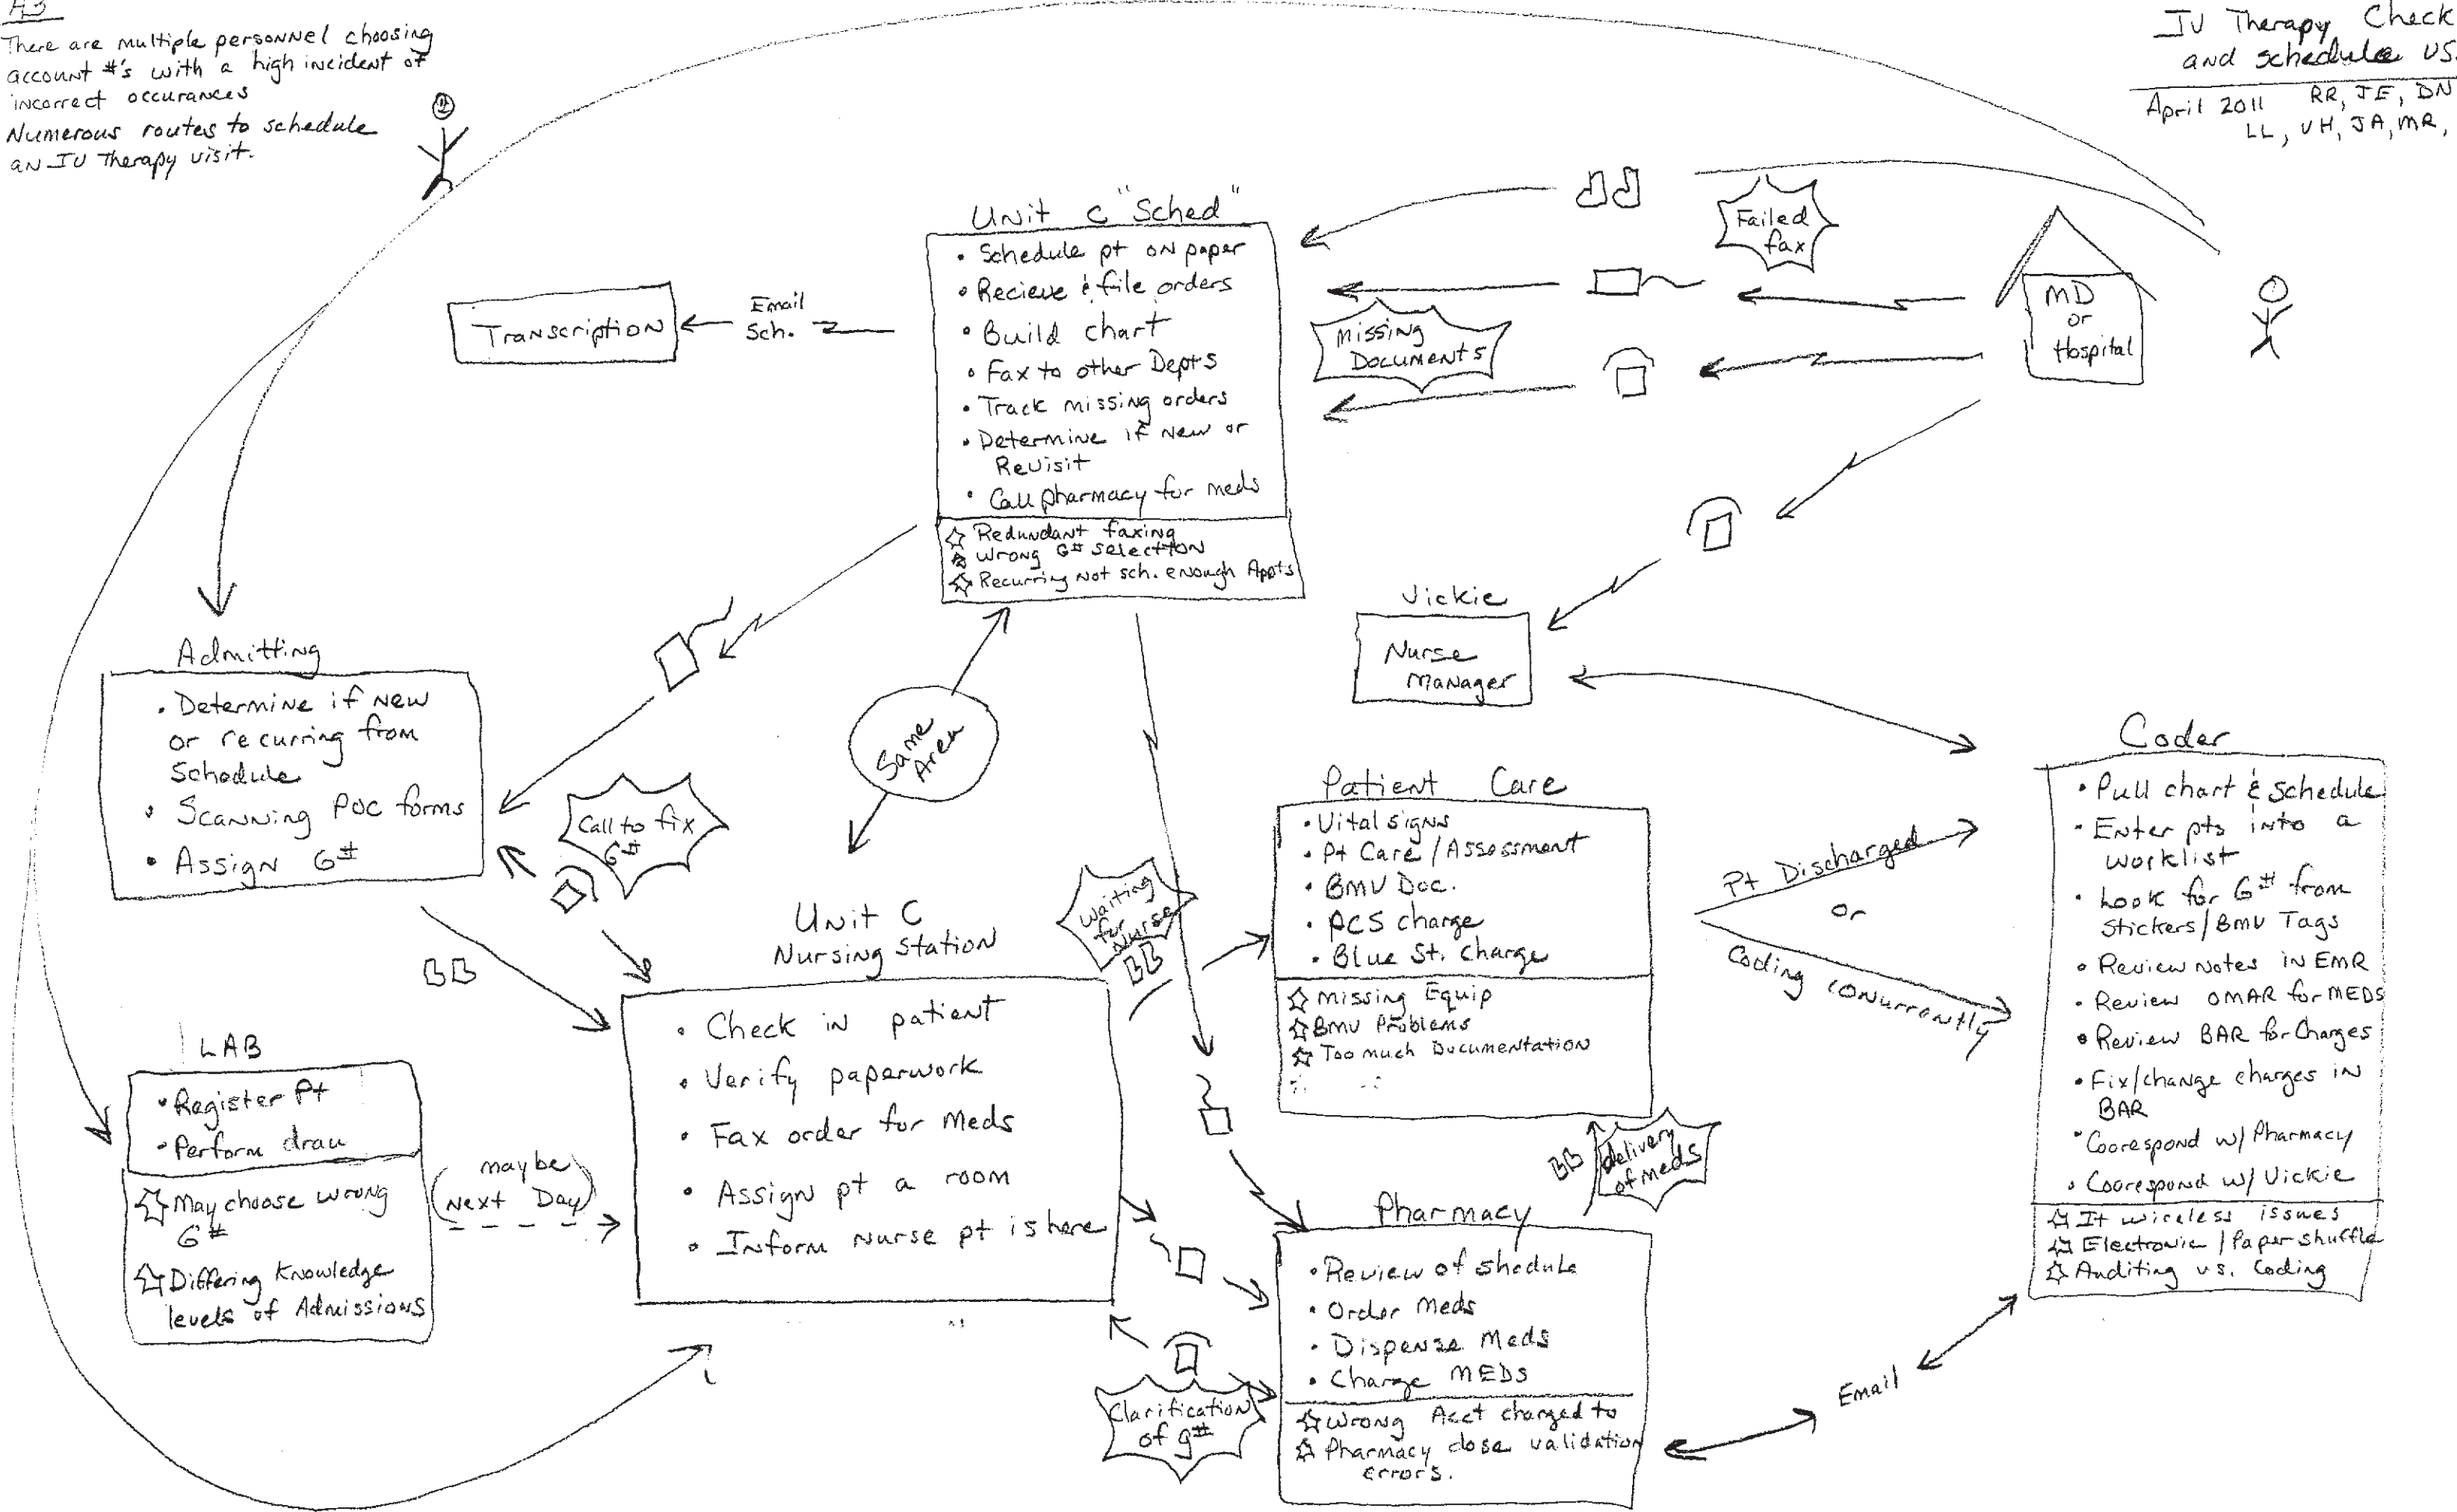 A3
There are multiple personnel choosing
account #'s with a high incident of
incorrect occurances
Numerous routes to schedule
an IV Therapy visit.
IV Therapy Check
and schedule VS.
April 2011 RR, JE, DN
LL, VH, JA, MR,
Unit C "Sched"
• Schedule pt on paper
• Recieve & file orders
• Build chart
• Fax to other Depts
• Track missing orders
• Determine if New or
Revisit
• Call pharmacy for meds
☆ Redundant faxing
☆ Wrong G# selection
☆ Recurring Not sch. enough Appts
Transcription
Email
Sch.
Failed
fax
Missing
Documents
MD
or
Hospital
Vickie
Nurse
Manager
Same
Area
Admitting
• Determine if New
or recurring from
Schedule
• Scanning POC forms
• Assign G#
Call to fix
G#
LAB
• Register Pt
• Perform draw
☆ May choose wrong
G#
☆ Differing Knowledge
levels of Admissions
(maybe
Next Day)
Unit C
Nursing Station
• Check in patient
• Verify paperwork
• Fax order for Meds
• Assign pt a room
• Inform nurse pt is here
Waiting
for
Nurse
Patient Care
• Vital signs
• Pt Care / Assessment
• BMV Doc.
• PCS charge
• Blue St. Charge
☆ Missing Equip
☆ BMV Problems
☆ Too much Documentation
delivery
of meds
Pharmacy
• Review of Shedule
• Order Meds
• Dispense Meds
• Charge MEDs
☆ Wrong Acct charged to
☆ Pharmacy dose validation
errors.
Clarification
of g#
Pt Discharged
or
Coding conurrantly
Coder
• Pull chart & Schedule
• Enter pts into a
worklist
• Look for G# from
Stickers/BMV Tags
• Review Notes in EMR
• Review OMAR for MEDS
• Review BAR for Charges
• Fix/change charges in
BAR
• Coorespond w/ Pharmacy
• Coorespond w/ Vickie
☆ It wireless issues
☆ Electronic / Paper shuffle
☆ Auditing vs. Coding
Email